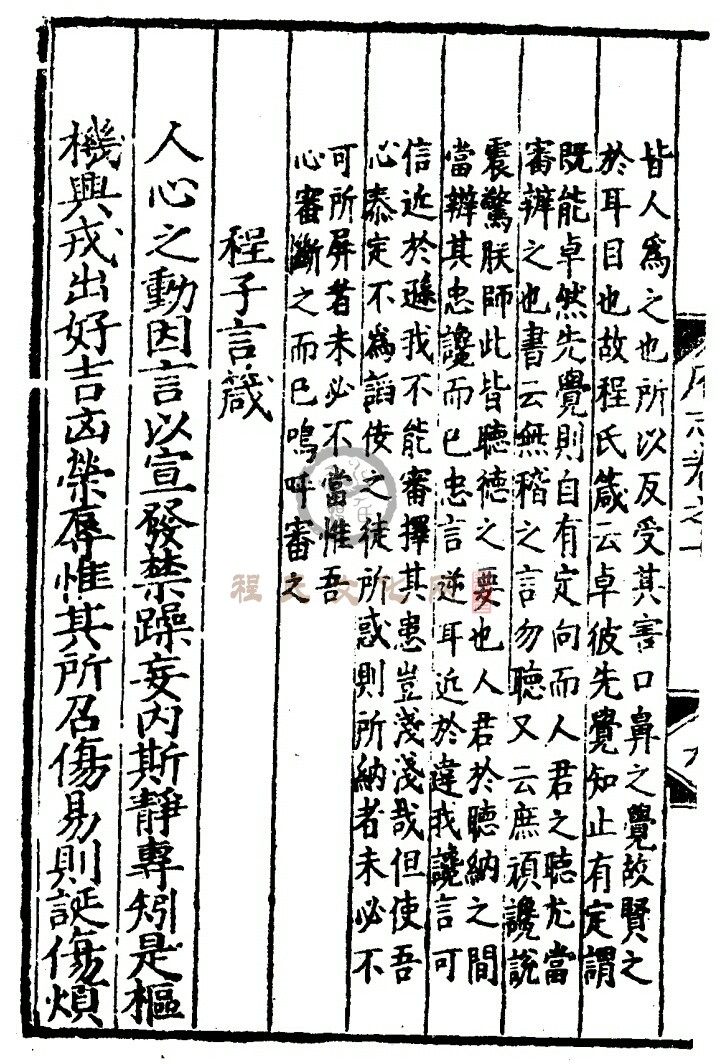 皆人爲之也所以反受其害口鼻之覺故賢之
於耳目也故程氏箴云卓彼先覺知止有定謂
既能卓然先覺則自有定向而人君之聽尤當
審辨之也書云無稽之言勿聽又云庶頑讒說
震驚朕師此皆聽德之要也人君於聽納之間
當辨其忠讒而已忠言逆耳近於違我讒言可
信近於遜我不能審擇其患豈淺淺哉但使吾
心泰定不為謟佞之徒所惑則所納者未必不
可所屏者未必不當惟吾
心審斷之而已嗚呼審之
程子言箴
人心之動因言以宣發禁躁妄內斯靜專矧是樞
機興戎出好吉凶榮辱惟其所召傷易則誕傷煩